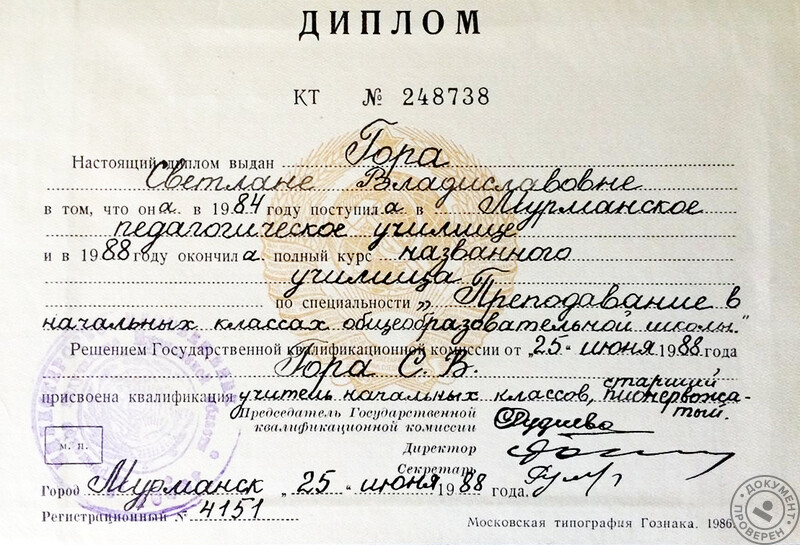 ДИПЛОМ
КТ № 248738
Настоящий диплом выдан Гора
Светлане Владиславовне
в том, что она в 1984 году поступила в Мурманское
педагогическое училище
и в 1988 году окончила полный курс названного
училища
по специальности „Преподавание в
начальных классах общеобразовательной школы."
Решением Государственной квалификационной комиссии от „25" июня 1988 года
Гора С. В.
присвоена квалификация учитель начальных классов, старший пионервожа-
тый.
Председатель Государственной
квалификационной комиссии
Директор
Секретарь
м. п.
Город Мурманск „25" июня 1988 года.
Регистрационный № 4151
Московская типография Гознака. 1986.
ДОКУМЕНТ ПРОВЕРЕН